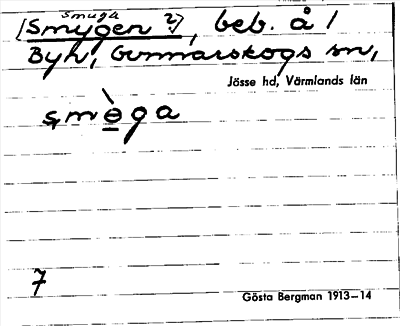 smuga
[Smygen ?], beb. å /
Byn, Gunnarskogs sn,
Jösse hd, Värmlands län
smòga
7
Gösta Bergman 1913–14